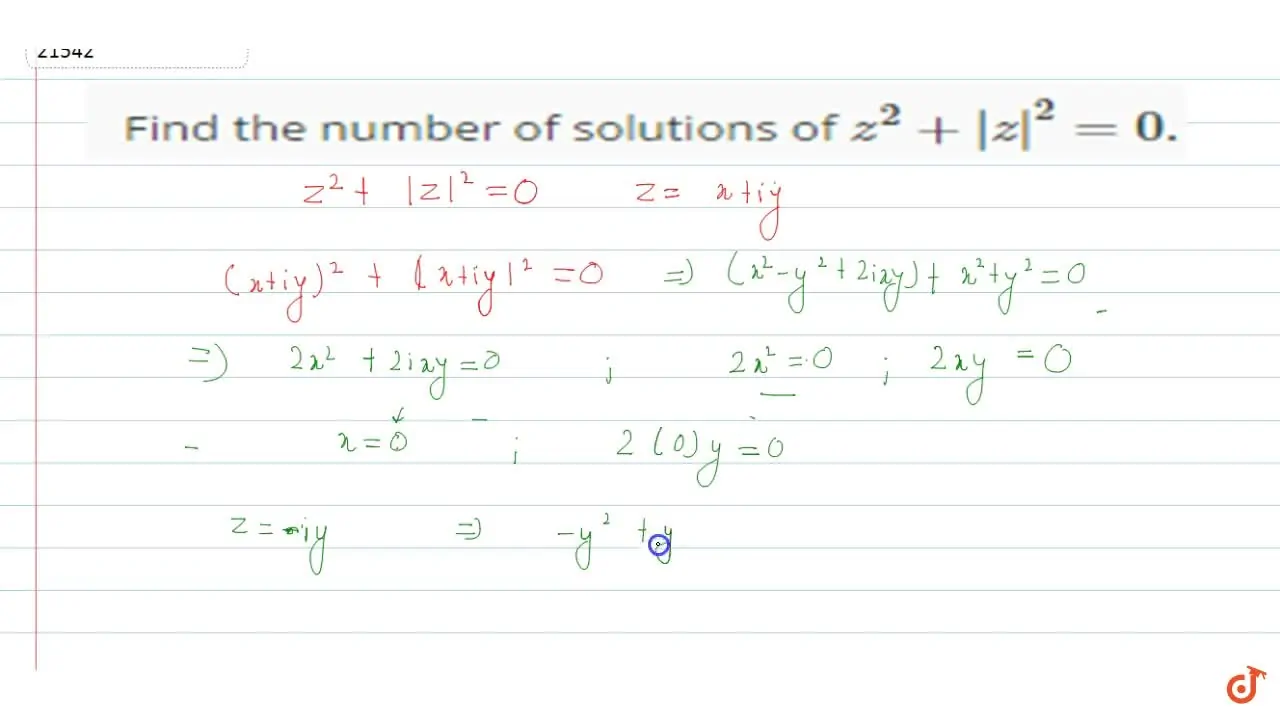 21542
Find the number of solutions of z² + |z|² = 0.
z² + |z|² = 0 z = x+iy
(x+iy)² + |x+iy|² = 0 ⇒ (x² - y² + 2ixy) + x² + y² = 0
⇒ 2x² + 2ixy = 0 ; 2x² = 0 ; 2xy = 0
x = 0 ; 2(0)y = 0
z = iy ⇒ -y² + y